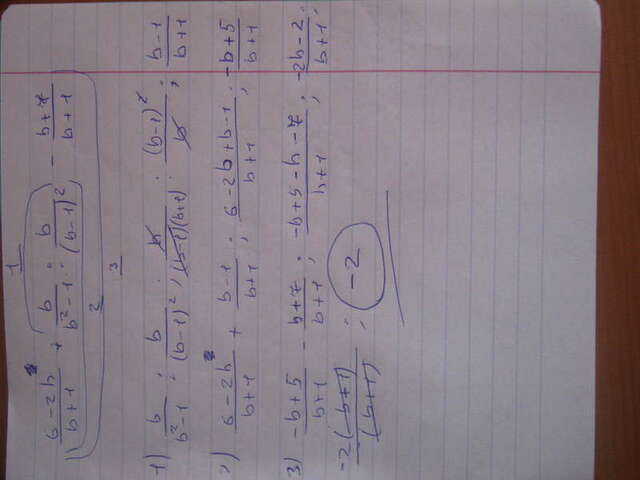 1
(6-2b)/(b+1) + b/(b²-1) : b/(b-1)² - (b+7)/(b+1)
2
3
1) b/(b²-1) : b/(b-1)² ; b/((b-1)(b+1)) · (b-1)²/b ; (b-1)/(b+1)
2) (6-2b)/(b+1) + (b-1)/(b+1) ; (6-2b+b-1)/(b+1) ; (-b+5)/(b+1)
3) (-b+5)/(b+1) - (b+7)/(b+1) ; (-b+5-b-7)/(b+1) ; (-2b-2)/(b+1) ;
-2(b+1)/(b+1) ; -2